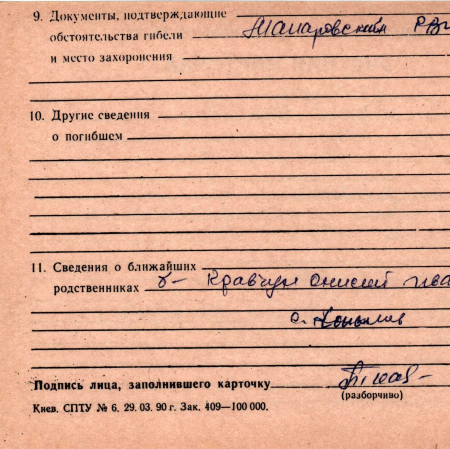 9. Документы, подтверждающие
обстоятельства гибели
и место захоронения
10. Другие сведения
о погибшем
11. Сведения о ближайших
родственниках б– Кравчук Онисий
с.
Подпись лица, заполнившего карточку
(разборчиво)
Киев. СПТУ № 6. 29. 03. 90 г. Зак. 409—100 000.